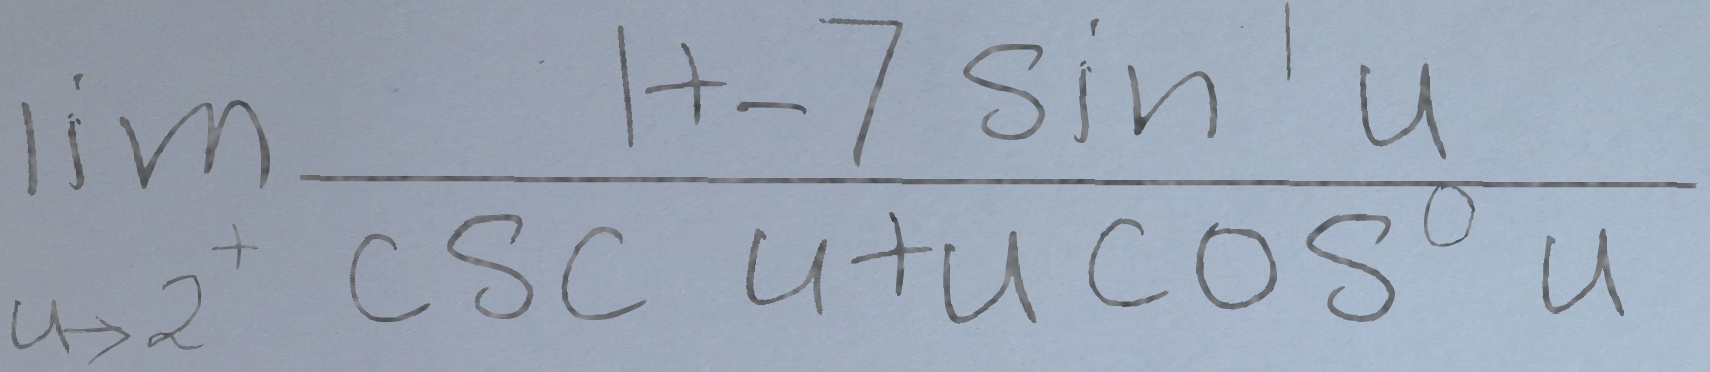 \lim_{u \to 2^+} \frac{1+-7 \sin^1 u}{\csc u+u \cos^0 u}